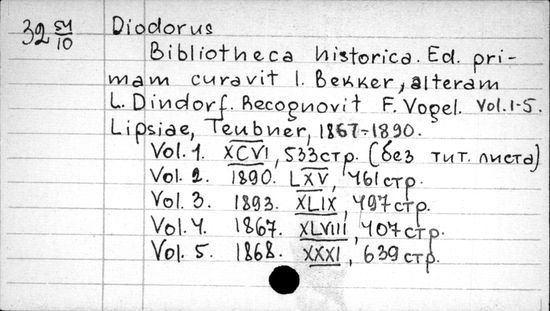 32 54/10
Diodorus
Bibliotheca historica. Ed. pri-
mam curavit I. Bekker, alteram
L. Dindorf. Recognovit F. Vogel. Vol. 1-5.
Lipsiae, Teubner, 1867-1890.
Vol. 1. XCVI, 533 стр. (без тит. листа)
Vol. 2. 1890. LXV, 461 стр.
Vol. 3. 1893. XLIX, 497 стр.
Vol. 4. 1867. XLVIII, 407 стр.
Vol. 5. 1868. XXXI, 639 стр.